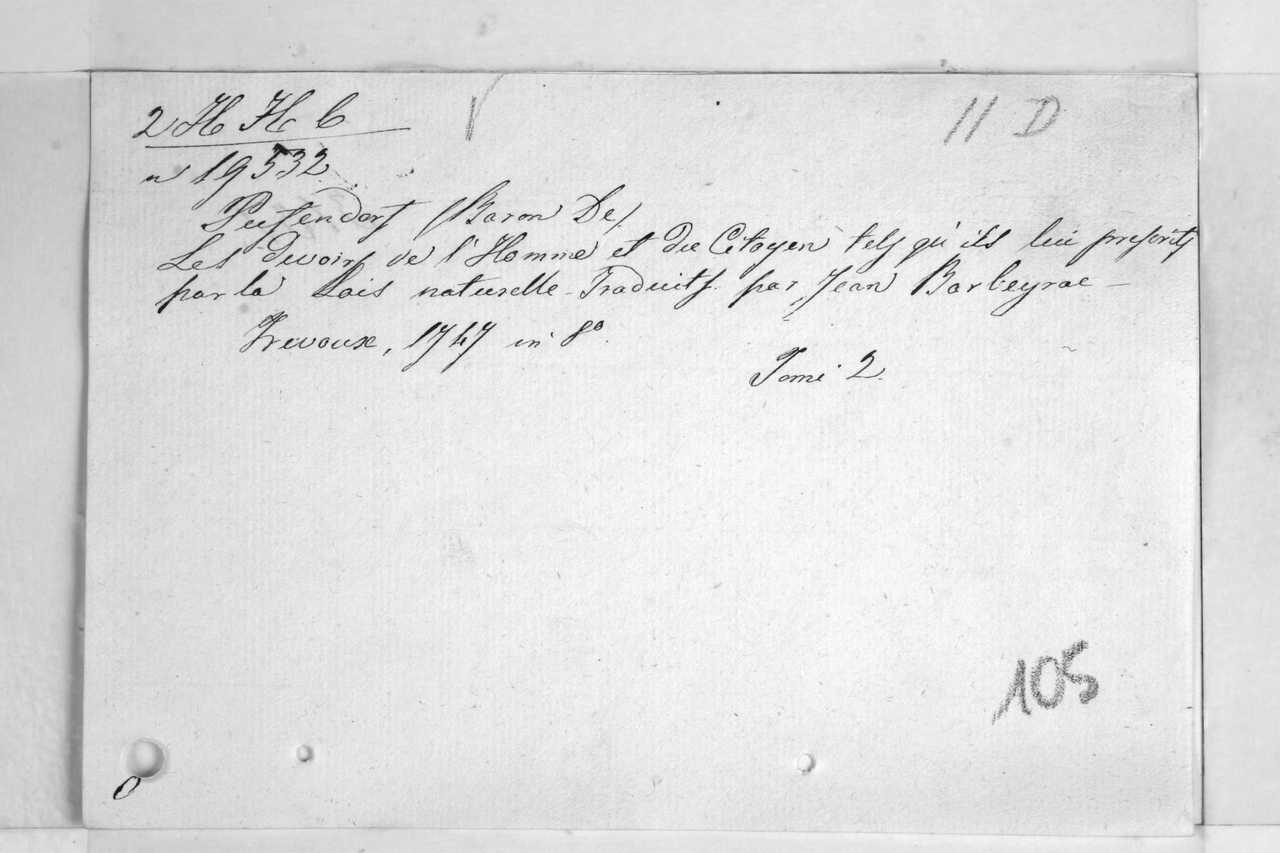 2 H H b
11 D
n 19532
Pufendorf (Baron De).
Les devoirs de l'Homme et du Citoyen tels qu'ils lui prescrits
par la Lois naturelle - Traduits par Jean Barbeyrac -
Trevoux, 1747 in 8°.
Tome 2.
105
0